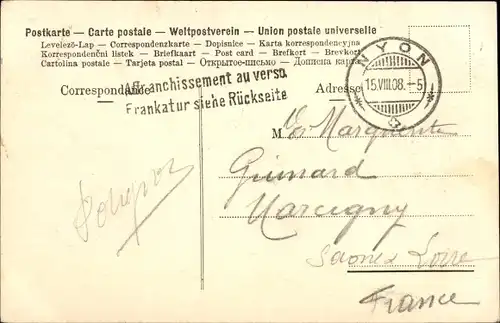 Postkarte — Carte postale — Weltpostverein — Union postale universelle
Levelező-Lap — Correspondenzkarte — Dopisnice — Karta korrespondencyjna
Korrespondenční listek — Briefkaart — Post card — Brefkort — Brevkort
Cartolina postale — Tarjeta postal — Открытое-письмо — Дописна карта
Correspondance
Affranchissement au verso.
Frankatur siehe Rückseite
Adresse
NYON
15.VIII.08.-5
M Marguerite
Guimard
Marcigny
Saône Loire
France